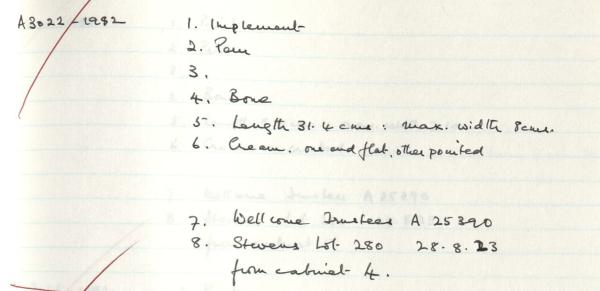 A3022-1982 1. Implement
2. Peru
3.
4. Bone
5. Length 31.4 cms : max. width 8cms.
6. Cream. one end flat, other pointed
7. Wellcome Trustees A 25390
8. Stevens Lot 280 28.8.23
from cabinet 4.